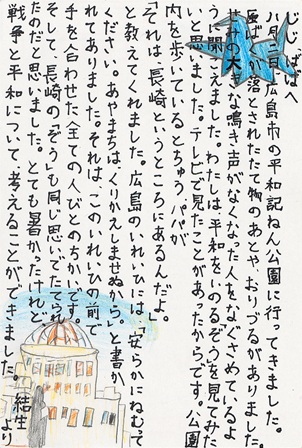 じじばばへ
八月二日、広島市の平和記ねん公園に行ってきました。
ばくだんが落とされたたて物のあとや、おりづるがありました。
せみの大きな鳴き声がなくなった人をなぐさめているよ
うに聞こえました。わたしは平和をいのるぞうを見てみた
いと思いました。テレビで見たことがあったからです。公園
内を歩いているとちゅう、パパが
「それは、長崎というところにあるんだよ。」
と教えてくれました。広島のいれいひには、「安らかにねむって
ください。あやまちは、くりかえしませぬから。」と書か
れてありました。それは、このいれいひの前で
手を合わせた全ての人びとのちかいです。
そして、長崎の「ぞう」も同じ思いで
たのだと思いました。とても暑かったけれど
戦争と平和について、考えることができました。
結生より